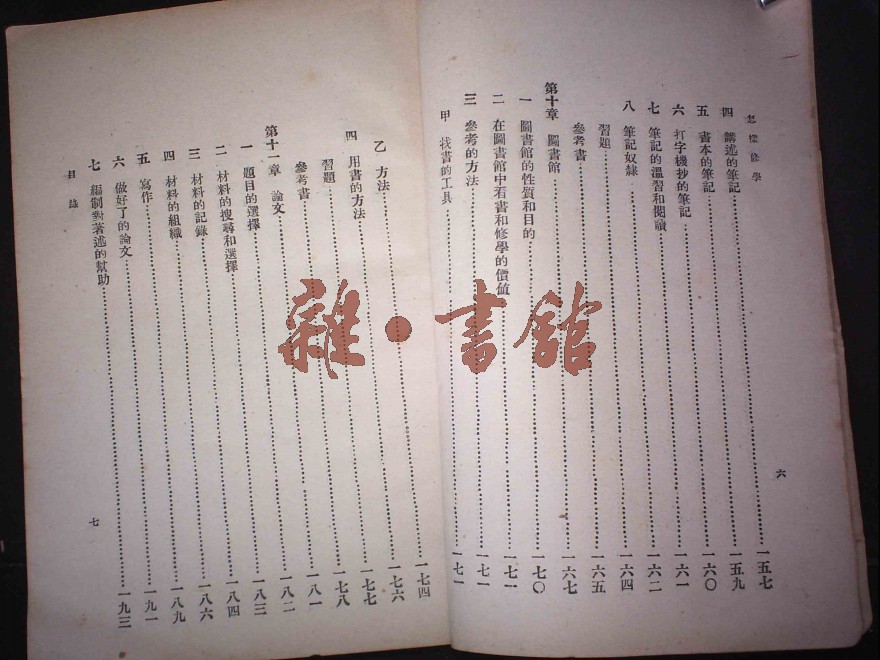 怎樣修學
六
四 講述的筆記……一五七
五 書本的筆記……一五九
六 打字機抄的筆記……一六〇
七 筆記的溫習和閱讀……一六一
八 筆記奴隸……一六二
習題……一六四
參考書……一六五
第十章 圖書館……一六七
一 圖書館的性質和目的……一七〇
二 在圖書館中看書和修學的價值……一七一
三 參考的方法……一七一
甲 找書的工具……一七一
乙 方法……一七四
四 用書的方法……一七六
習題……一七七
參考書……一七八
第十一章 論文……一八一
一 題目的選擇……一八二
二 材料的搜尋和選擇……一八三
三 材料的記錄……一八四
四 材料的組織……一八六
五 寫作……一八九
六 做好了的論文……一九一
七 編制對著述的幫助……一九三
目錄
七
雜·書館